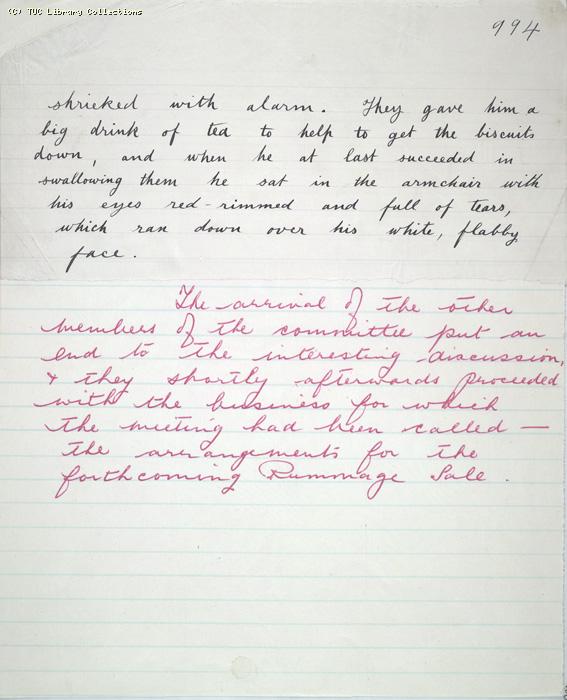 (C) TUC Library Collections
994
shrieked with alarm. They gave him a
big drink of tea to help to get the biscuits
down, and when he at last succeeded in
swallowing them he sat in the armchair with
his eyes red-rimmed and full of tears,
which ran down over his white, flabby
face.
The arrival of the other
members of the committee put an
end to the interesting discussion,
& they shortly afterwards proceeded
with the business for which
the meeting had been called —
the arrangements for the
forthcoming Rummage Sale.